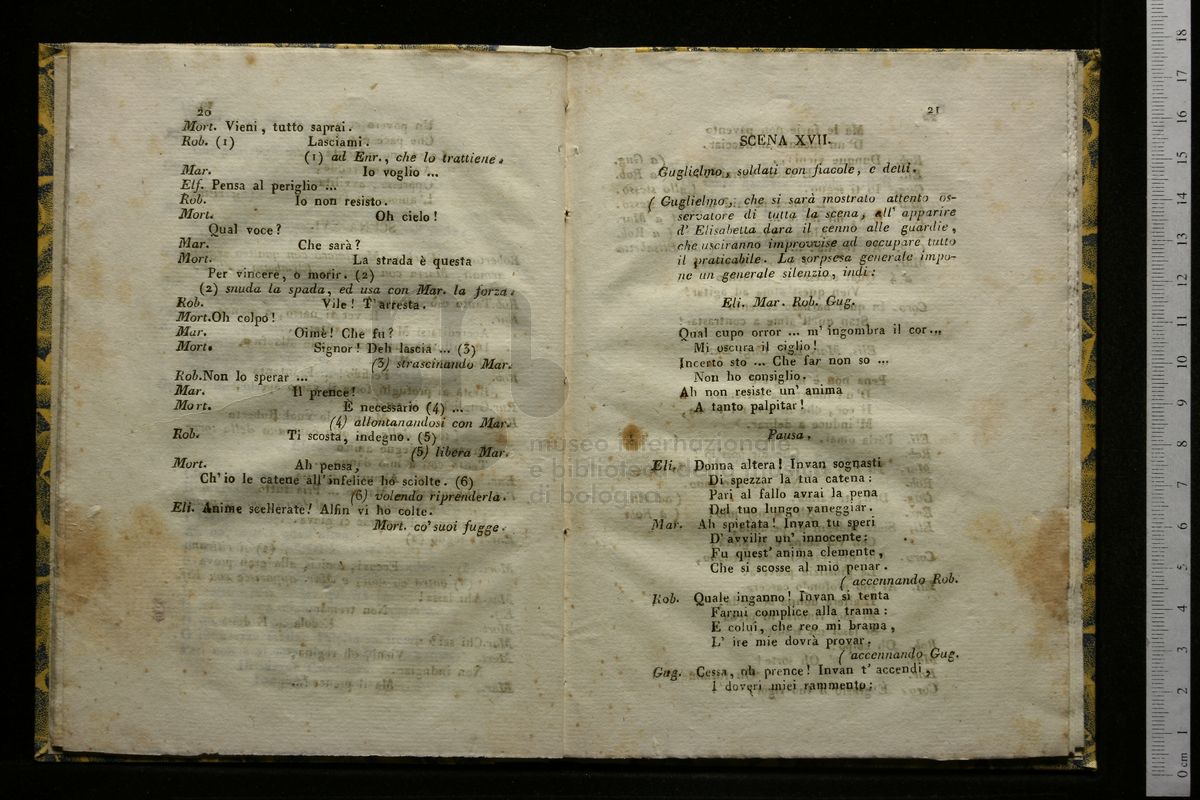 20
Mort. Vieni, tutto saprai.
Rob. (1) Lasciami.
(1) ad Enr., che lo trattiene.
Mar. Io voglio ...
Elf. Pensa al periglio ...
Rob. Io non resisto.
Mort. Oh cielo!
Qual voce?
Mar. Che sarà?
Mort. La strada è questa
Per vincere, o morir. (2)
(2) snuda la spada, ed usa con Mar. la forza.
Rob. Vile! T'arresta.
Mort. Oh colpo!
Mar. Oimè! Che fu?
Mort. Signor! Deh lascia ... (3)
(3) strascinando Mar.
Rob. Non lo sperar ...
Mar. Il prence!
Mort. È necessario (4) ...
(4) allontanandosi con Mar.
Rob. Ti scosta, indegno. (5)
(5) libera Mar.
Mort. Ah pensa,
Ch'io le catene all'infelice ho sciolte. (6)
(6) volendo riprenderla.
Eli. Anime scellerate! Alfin vi ho colte.
Mort. co' suoi fugge.
21
SCENA XVII.
Guglielmo, soldati con fiacole, e detti.
( Guglielmo, che si sarà mostrato attento os-
servatore di tutta la scena, all' apparire
d' Elisabetta darà il cenno alle guardie,
che usciranno improvvise ad occupare tutto
il praticabile. La sorpsesa generale impo-
ne un generale silenzio, indi:
Eli. Mar. Rob. Gug.
Qual cupo orror ... m' ingombra il cor...
Mi oscura il ciglio!
Incerto sto ... Che far non so ...
Non ho consiglio.
Ah non resiste un' anima
A tanto palpitar!
Pausa.
Eli. Donna altera! Invan sognasti
Di spezzar la tua catena:
Pari al fallo avrai la pena
Del tuo lungo vaneggiar.
Mar. Ah spietata! Invan tu speri
D' avvilir un' innocente:
Fu quest' anima clemente,
Che si scosse al mio penar.
( accennando Rob.
Rob. Quale inganno! Invan si tenta
Farmi complice alla trama:
E colui, che reo mi brama,
L' ire mie dovrà provar.
( accennando Gug.
Gug. Cessa, oh prence! Invan t' accendi,
I doveri miei rammento:
museo internazionale
e biblioteca della
di bologna
0 cm 1 2 3 4 5 6 7 8 9 10 11 12 13 14 15 16 17 18